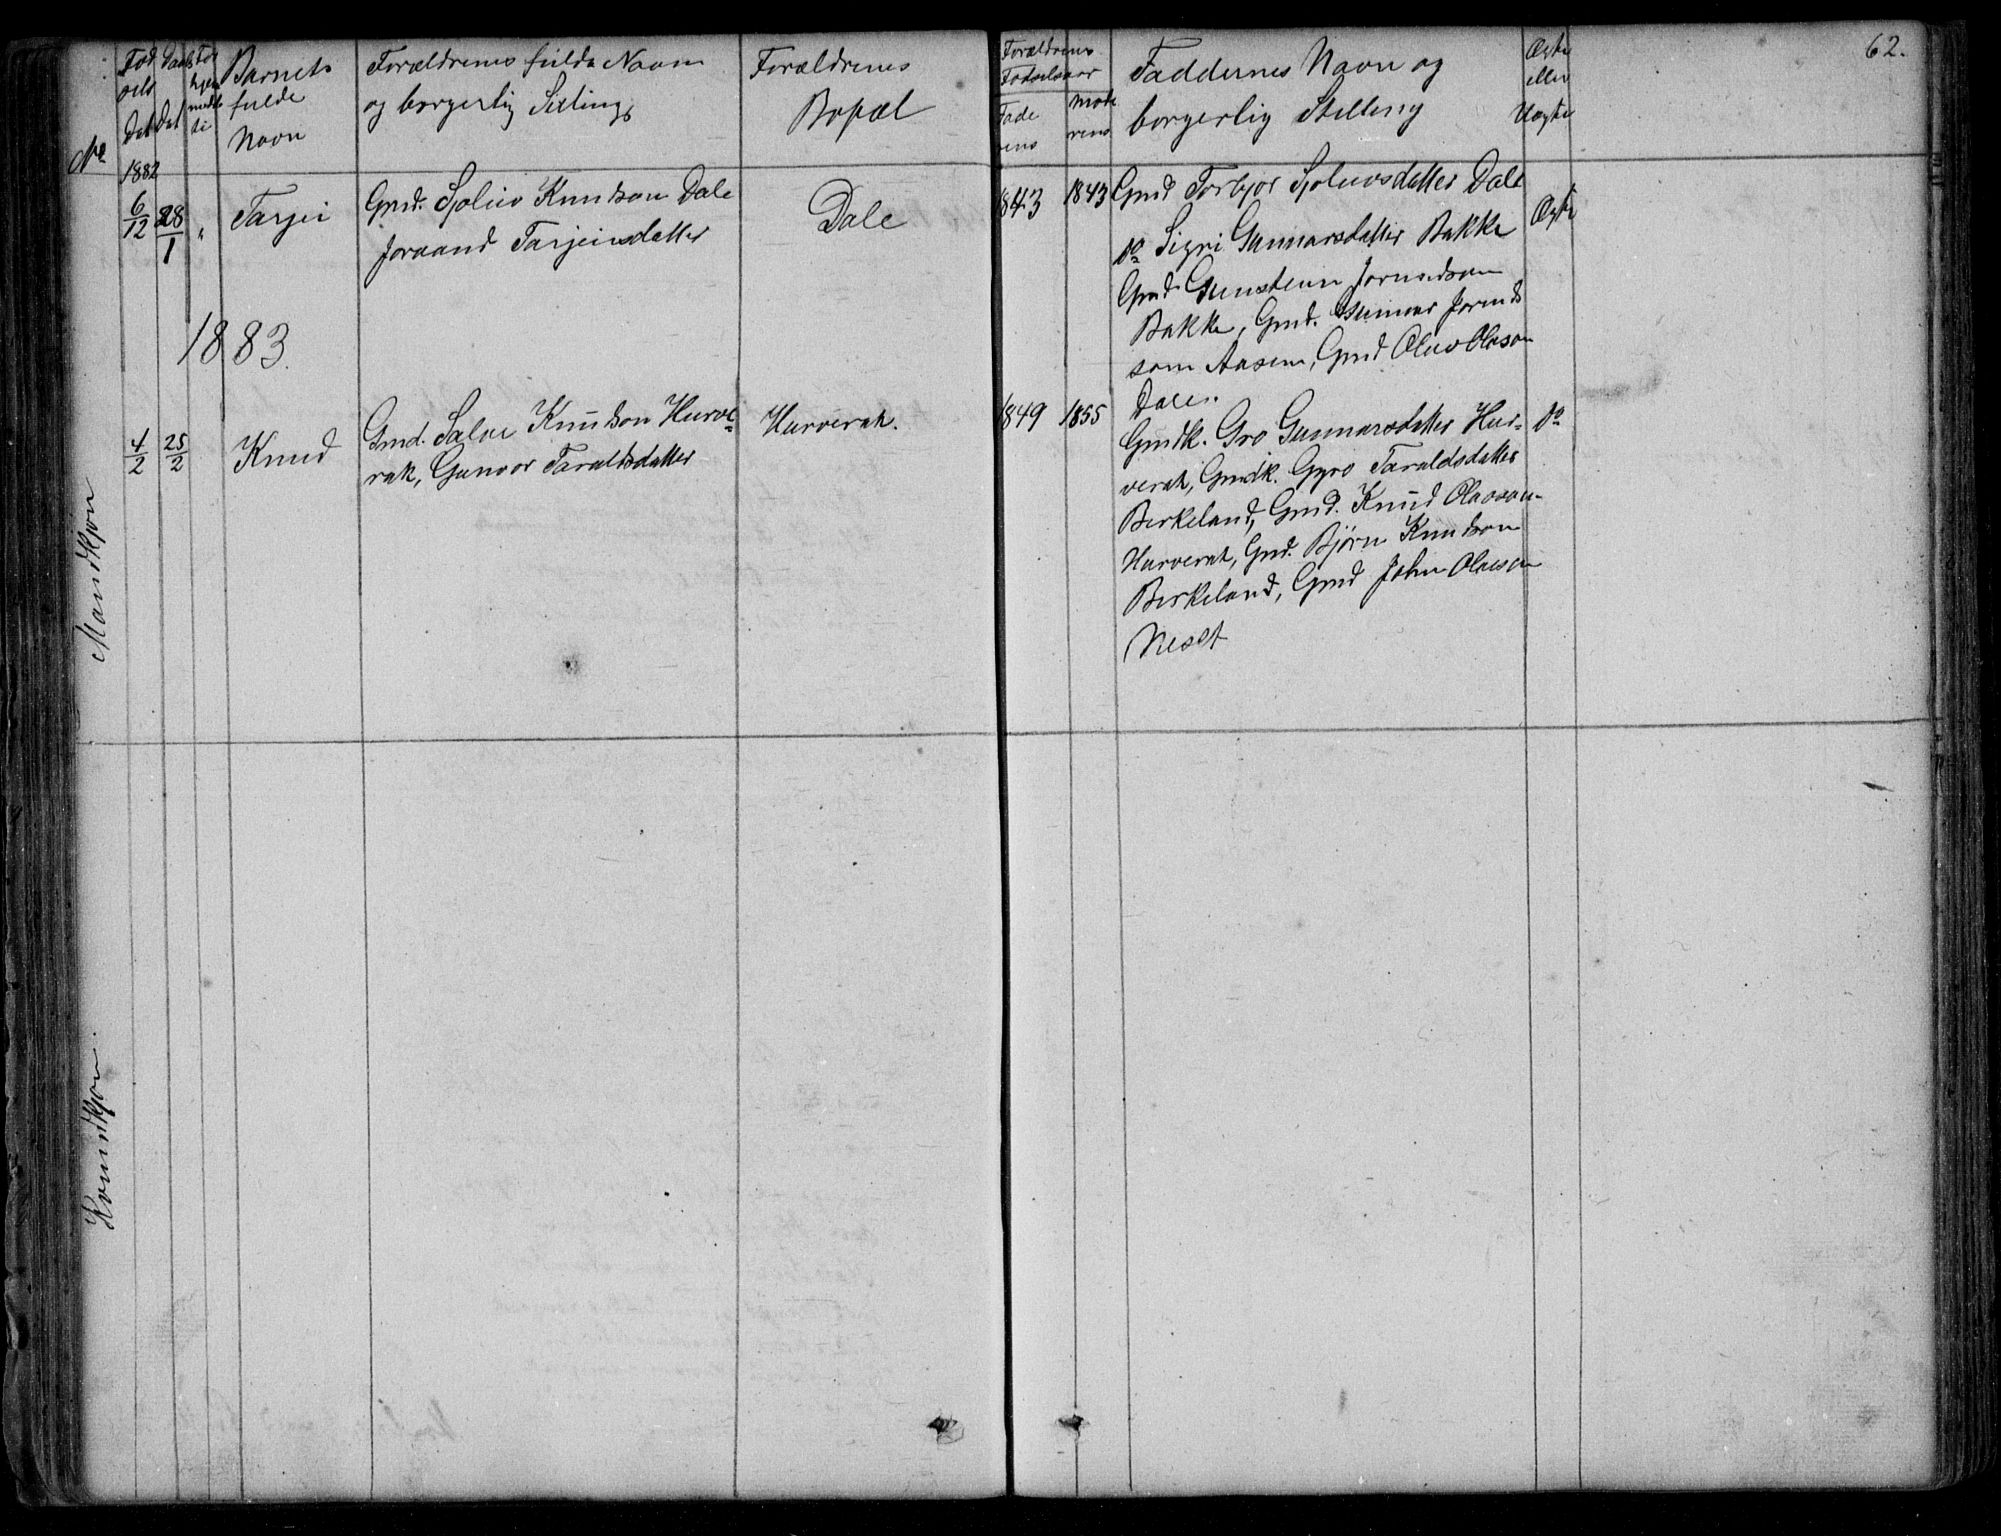 62.
No
Fød
sels
Dat
Daabs
Dat
Barnets
fulde
Navn
Forældrenes fulde Navn
og borgerlig Stilling
Forældrenes
Bopæl
Forældrenes
Fødselsaar
Fade
rens
Mode
rens
Faddernes Navn og
borgerlig Stilling
Ægte
eller
Uægte
1882
6/12 28/1 " Tarjei
Gmd. Sjoluv Knudson Dale
Joraand Tarjeisdatter
Dale
1843 1843
Gmd Torbjør Sjoluvsdatter Dale
Do Sigri Gunnarsdatter Bakke
Gmd Gunstein Jorundson
Bakke, Gmd. Gunnar Jorund
son Aasen, Gmd Oluv Olason
Dale.
Ægte
1883.
4/2 25/2 Knud
Gmd. Salve Knudson Hurve=
rak, Gunvor Taraldsdatter
Hurverak.
1849 1855
Gmdk. Gro Gunnarsdatter Hur=
verak, Gmdk. Gyro Taraldsdatter
Birkeland, Gmd. Knud Olavson
Hurverak, Gmd. Bjørn Knudson
Birkeland, Gmd John Olavson
Neset
Do
Mandkjøn
Kvindkjøn.